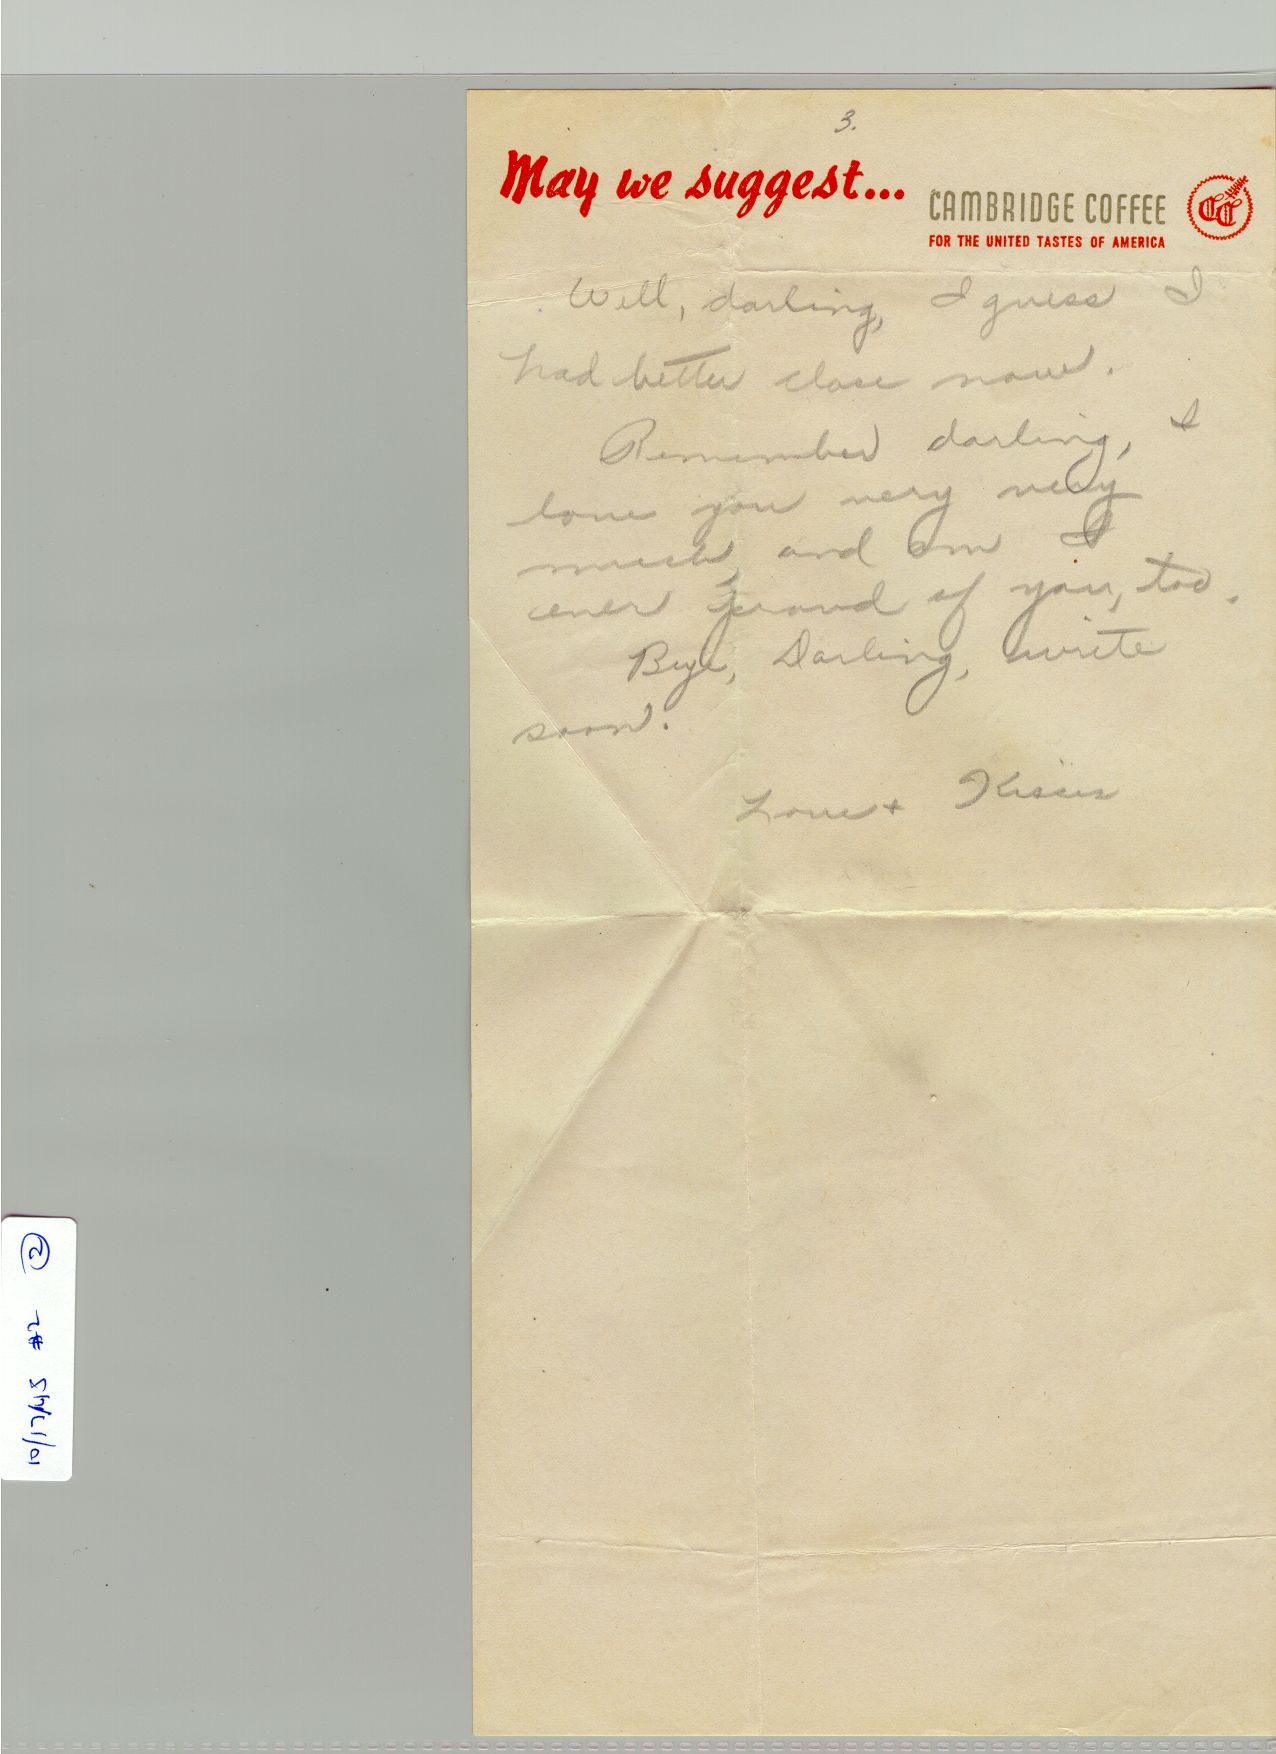 3.
May we suggest...
CAMBRIDGE COFFEE
FOR THE UNITED TASTES OF AMERICA
CC
Well, darling, I guess I
had better close now.
Remember darling, I
love you very very
much, and am I
ever proud of you, too.
Bye, Darling, write
soon.
Love + Kisses
② #2 10/17/45